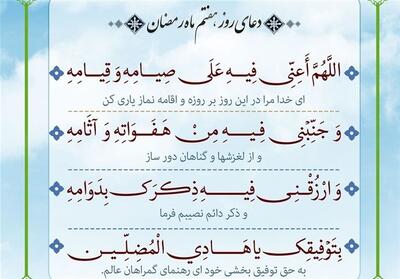 دعای روز هفتم ماه رمضان
اللَّهُمَّ أَعِنِّی فِیهِ عَلَی صِیَامِهِ وَ قِیَامِهِ
ای خدا مرا در این روز بر روزه و اقامه نماز یاری کن
وَ جَنِّبْنِی فِیهِ مِنْ هَفَوَاتِهِ وَ آثَامِهِ
و از لغزشها و گناهان دور ساز
وَ ارْزُقْنِی فِیهِ ذِکْرَکَ بِدَوَامِهِ
و ذکر دائم نصیبم فرما
بِتَوْفِیقِکَ یَا هَادِیَ الْمُضِلِّینَ
به حق توفیق بخشی خود ای رهنمای گمراهان عالم.